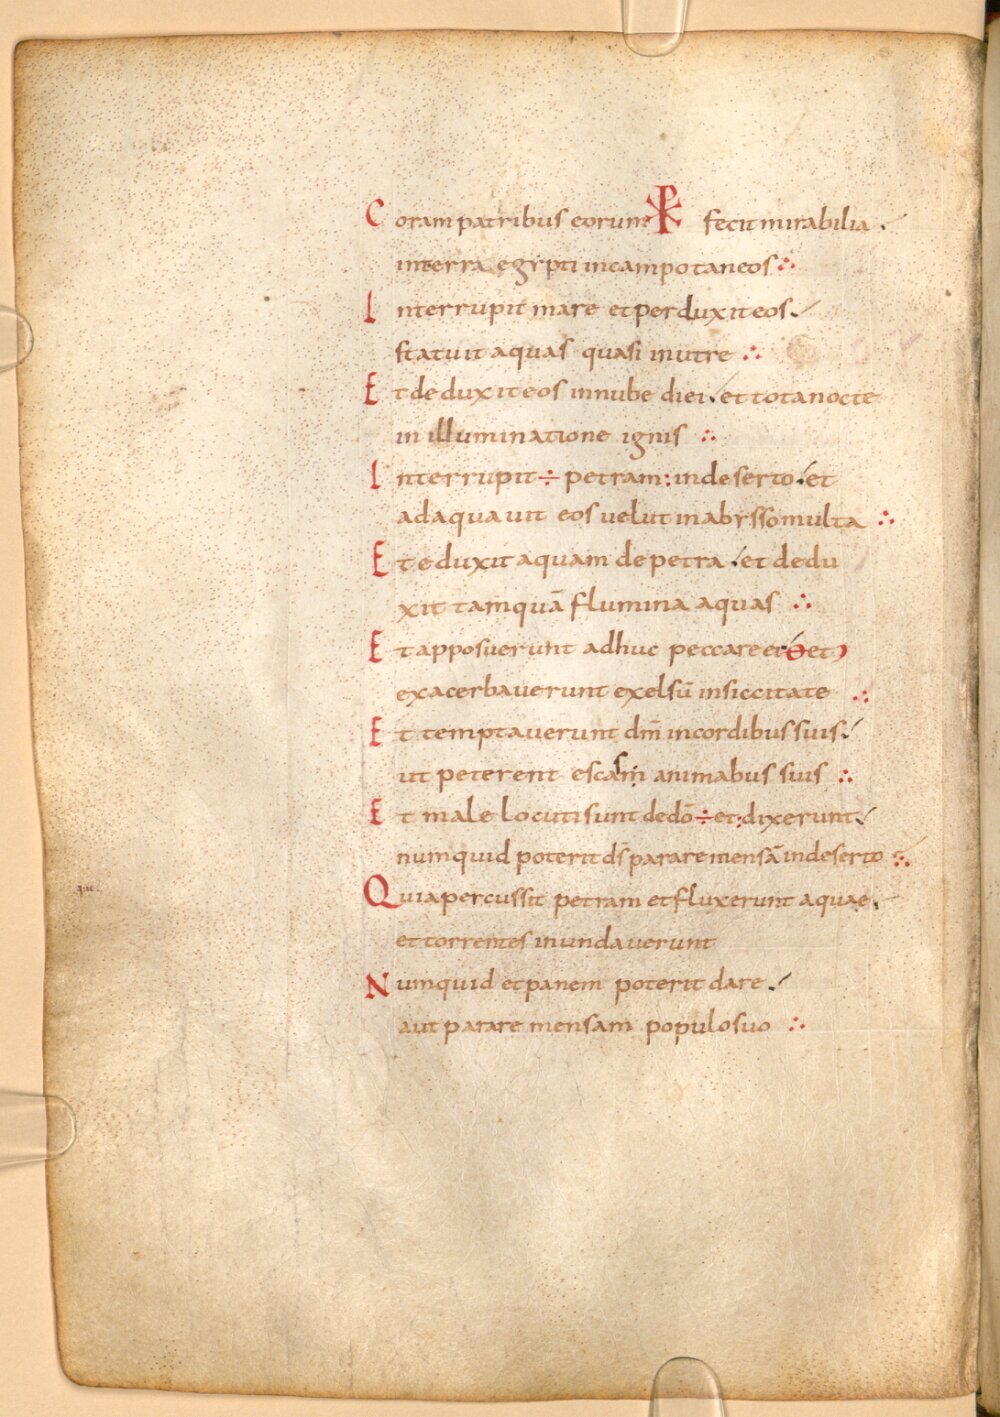 Coram patribus eorum ⳩ fecit mirabilia.
in terra egypti in campo taneos ∴
Interrupit mare et perduxit eos.
statuit aquas quasi in utre ∴
Et deduxit eos in nube diei. et tota nocte
in illuminatione ignis ∴
Interrupit ÷ petram: in deserto. et
adaquavit eos velut in abysso multa ∴
Et eduxit aquam de petra. et dedu
xit tamquā flumina aquas ∴
Et apposuerunt adhuc peccare et
exacerbaverunt exelsū in siccitate ∴
Et temptaverunt dm̄ in cordibus suis.
ut peterent escam animabus suis ∴
Et male locuti sunt de dō ÷ et: dixerunt.
numquid poterit ds parare mensā in deserto ∴
que.
Quia percussit petram et fluxerunt aquae.
et torrentes inundaverunt
Numquid et panem poterit dare.
aut parare mensam populo suo ∴